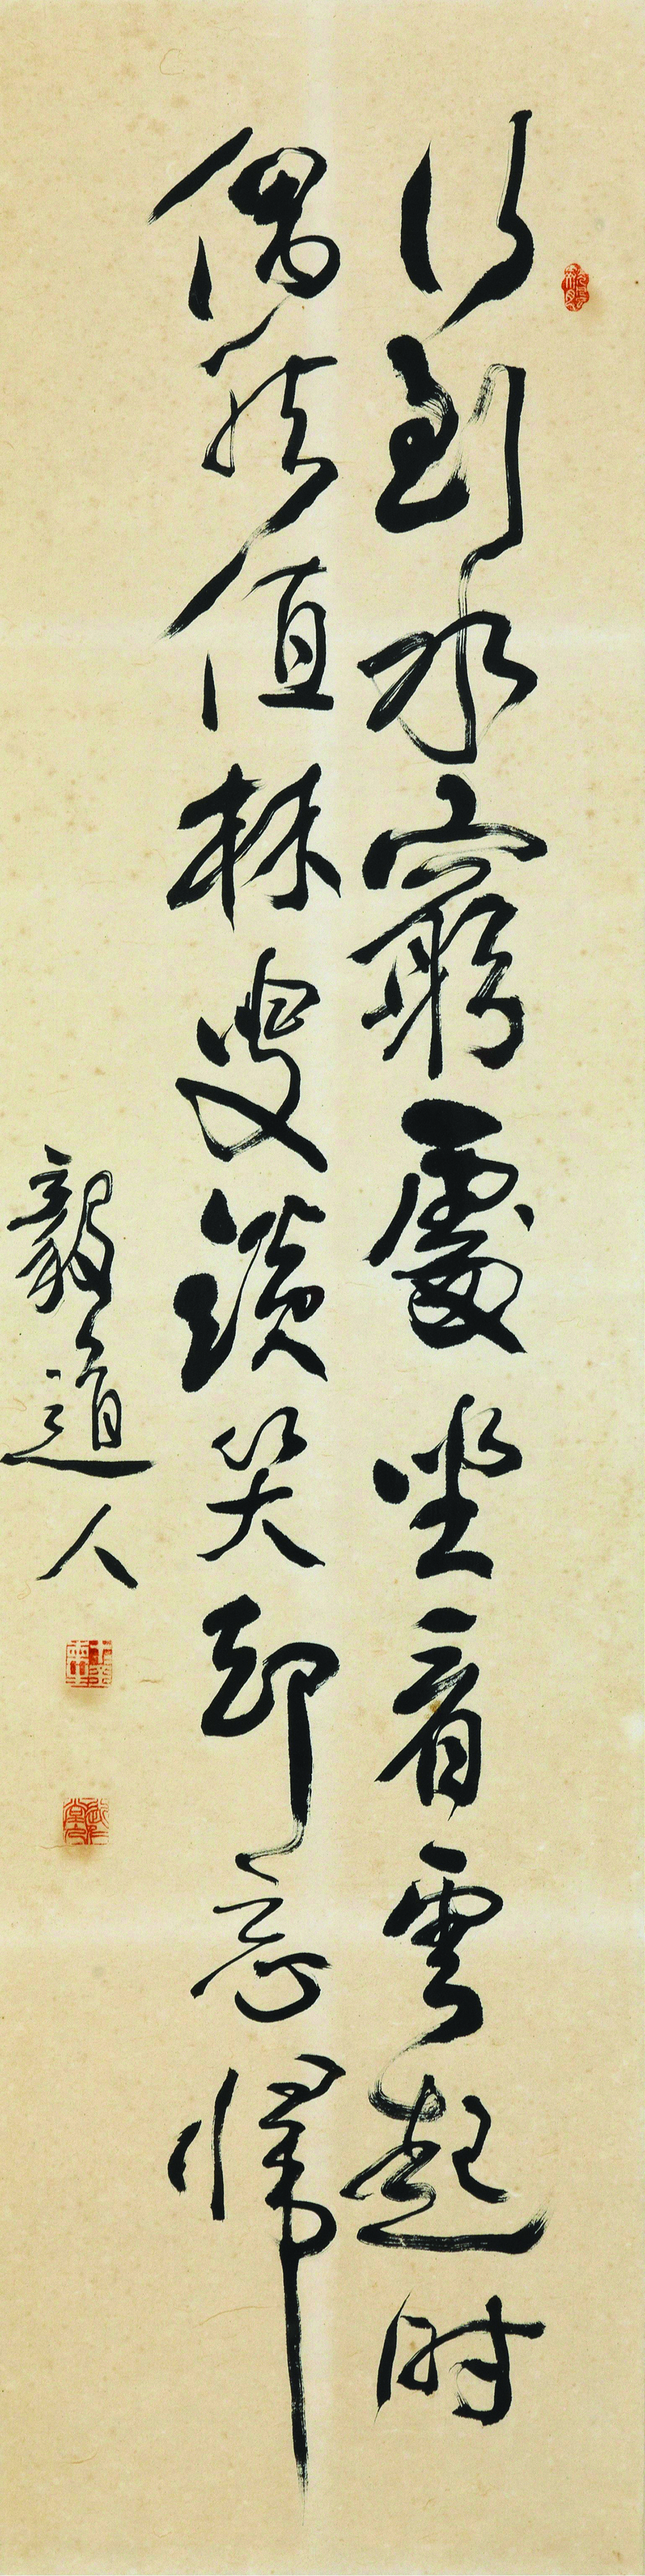 行到水窮處坐看雲起時
偶然值林叟談笑却忘歸
毅道人